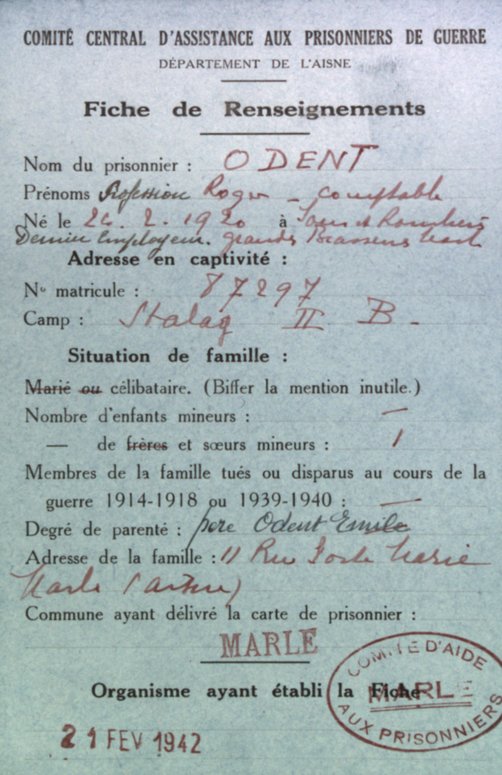 COMITÉ CENTRAL D'ASSISTANCE AUX PRISONNIERS DE GUERRE
DÉPARTEMENT DE L'AISNE
Fiche de Renseignements
Nom du prisonnier : ODENT
Prénoms Profession Roger - comptable
Né le 26. 2. 1920 à
Dernier employeur. Grandes Brasseries Marle
Adresse en captivité :
No matricule : 87297
Camp : Stalag II B -
Situation de famille :
Marié ou célibataire. (Biffer la mention inutile.)
Nombre d'enfants mineurs : —
— de frères et sœurs mineurs : 1
Membres de la famille tués ou disparus au cours de la
guerre 1914-1918 ou 1939-1940 : —
Degré de parenté : père Odent Emile
Adresse de la famille : 11 Rue Marie
Marle (Aisne)
Commune ayant délivré la carte de prisonnier :
MARLE
Organisme ayant établi la Fiche
COMITÉ D'AIDE
MARLE
AUX PRISONNIERS
21 FEV 1942